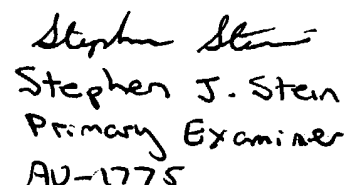 Stephen Stein
Stephen J. Stein
Primary Examiner
AU-1775